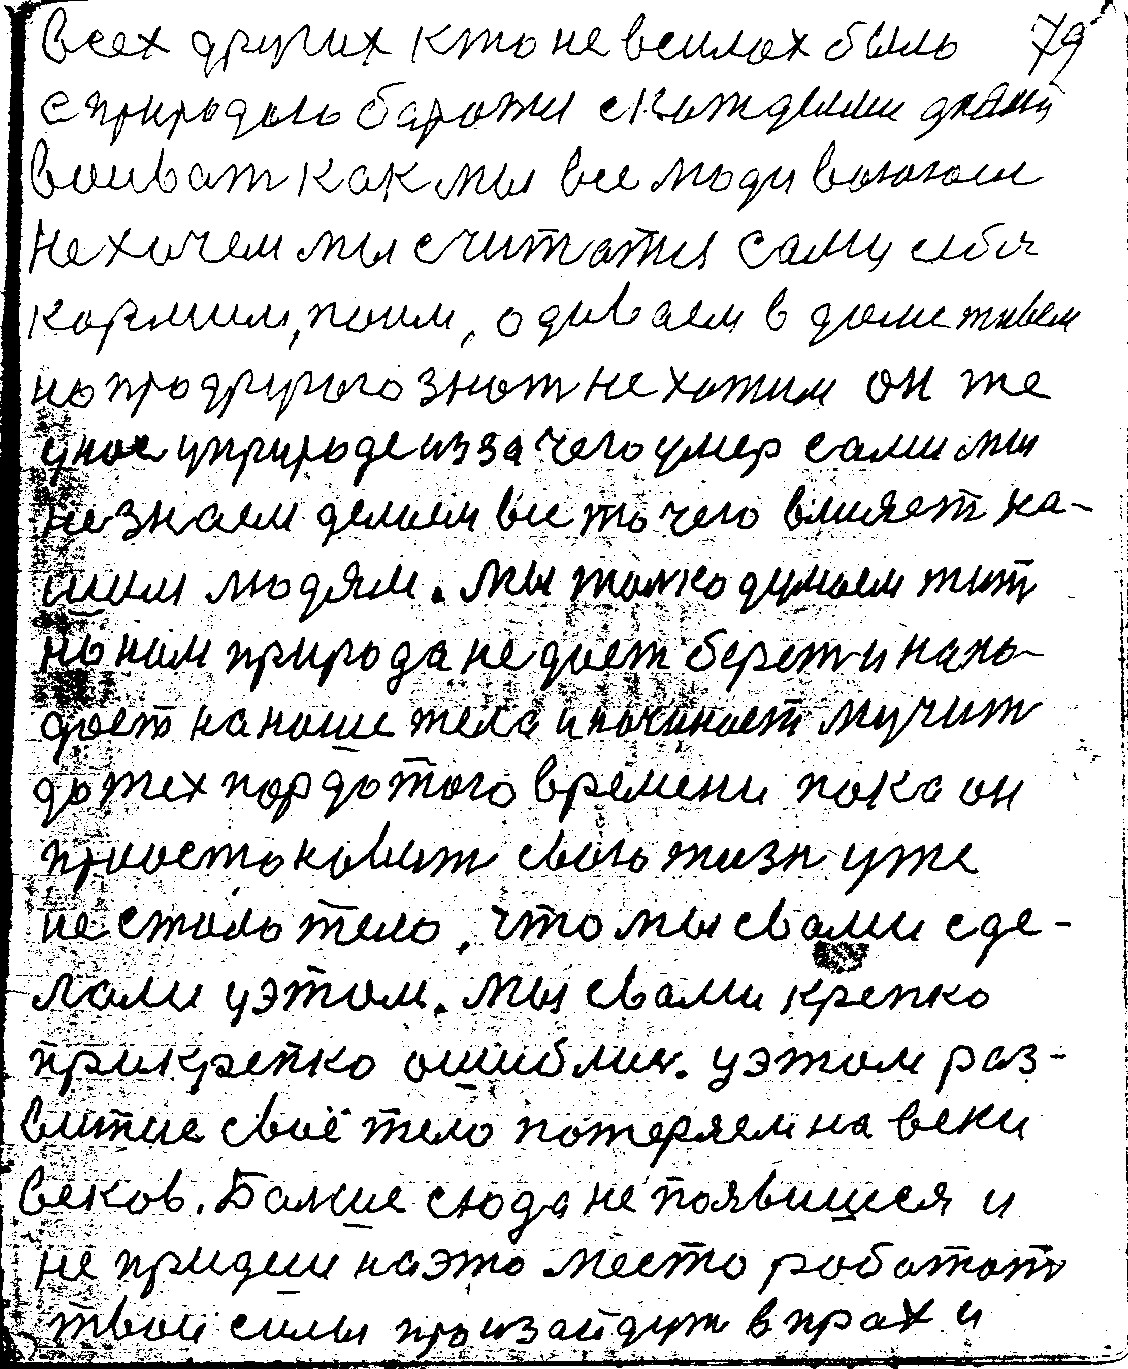 всех других кто не всилах быль 79
сприродою баротся скаждыми днями
воиват как мы все люди воюем
Не хочем мы считатся сами себя
кормим, поим, одиваем в доме живем
но продругого знат не хотим он же
уприроде из за чего умер сами мы
не знаем делаем все то чего влияет на-
шим людям. Мы толко думаем жит
но нам природа не дает берет и напа-
дает на наше тела и начинает мучит
до тех пор до того времени пока он
приостоновит свою жизн уже
не стало тело, что мы свами сде-
лали уэтом. Мы свами крепко
прикрепко ошиблис. уэтом раз-
витие своё тело потеряем на веки
веков. Балше сюда не появишся и
не придеш на это место работат
твои силы произайдут в прах и